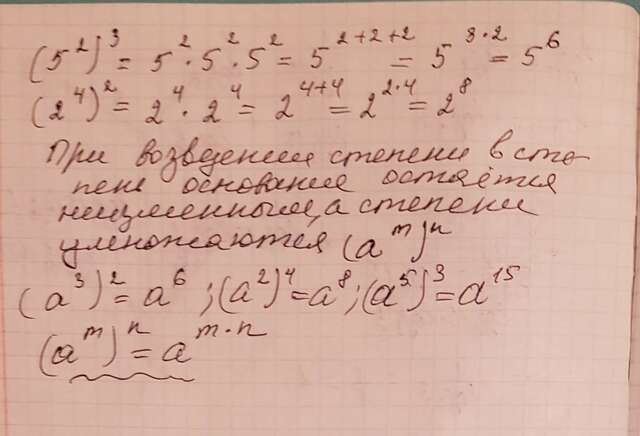 (5²)³ = 5²·5²·5² = 5²⁺²⁺² = 5³·² = 5⁶
(2⁴)² = 2⁴·2⁴ = 2⁴⁺⁴ = 2²·⁴ = 2⁸
При возведении степени в сте-
пень основание остаётся
неизменным, а степени
умножаются (aᵐ)ⁿ
(a³)² = a⁶ ; (a²)⁴ = a⁸ ; (a⁵)³ = a¹⁵
(aᵐ)ⁿ = aᵐ·ⁿ